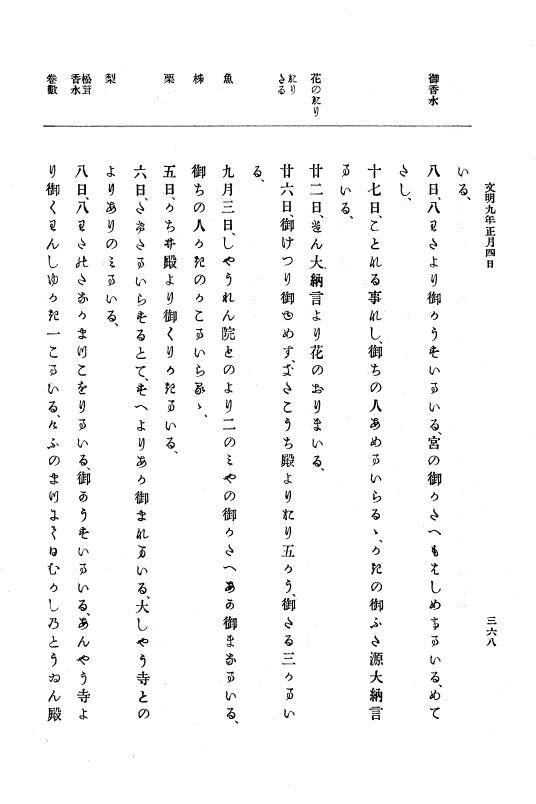 文明九年正月四日
三六八
御香水
花のおり
おり
たる
魚
柿
栗
梨
松茸
香水
卷數
いる、
八日、八わたより御かうすいまいる、宮の御かたへもはしめまいる、めて
たし、
十七日、ことなる事なし、御ちの人あめまいらるゝ、かたの御ふた源大納言
まいる、
廿二日、けん大納言より花のおりまいる、
廿六日、御けつり御めす、こうち殿よりおり五かう、御たる三かまい
る、
九月三日、しやうれん院とのより二のミやの御かたへあか御まなまいる、
御ちの人かきのかこまいらるゝ、
五日、うち井殿より御くりかたまいる、
六日、まいらするとて、そへよりあか御まなまいる、大しやう寺との
よりありのミまいる、
八日、八わたのたなかまつこをりまいる、御かうすいまいる、あんやう寺よ
り御くわんしゆかた一こまいる、けふのまつよくねむかし乃とうゐん殿